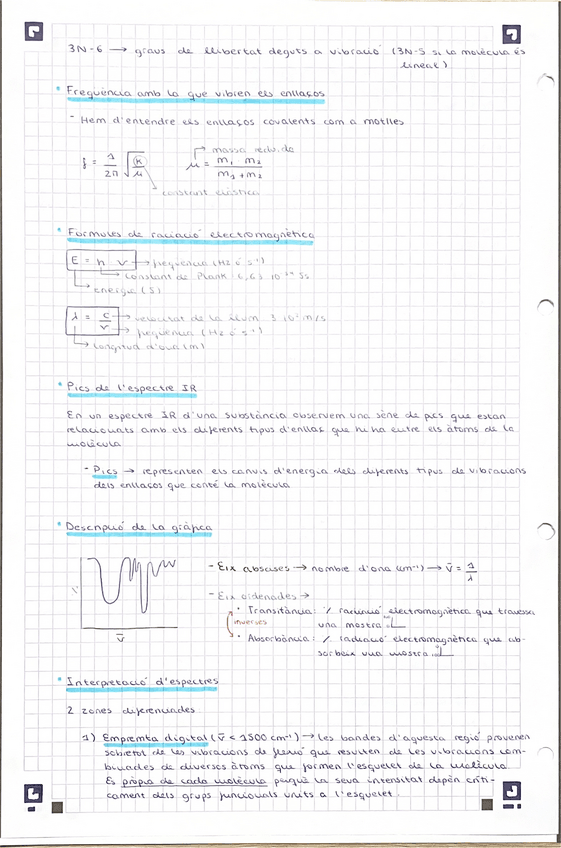 3N-6 → graus de llibertat deguts a vibració (3N-5 si la molècula és
lineal)
* Freqüència amb la que vibren els enllaços
- Hem d'entendre els enllaços covalents com a motlles
massa reduïda
f = 1/2π √k/μ   μ = m₁ · m₂ / m₁ + m₂
constant elàstica
* Formules de radiació electromagnètica
E = h · ν → freqüència (Hz ó s⁻¹)
constant de Plank: 6,63 · 10⁻³⁴ Js
energia (J)
λ = c/ν → velocitat de la llum 3 · 10⁸ m/s
freqüència (Hz ó s⁻¹)
longitud d'ona (m)
* Pics de l'espectre IR
En un espectre IR d'una substància observem una sèrie de pics que estan
relacionats amb els diferents tipus d'enllaç que hi ha entre els àtoms de la
molècula
- Pics → representen els canvis d'energia dels diferents tipus de vibracions
dels enllaços que conté la molècula
* Descripció de la gràfica
- Eix abscises → nombre d'ona (cm⁻¹) → ν̄ = 1/λ
- Eix ordenades →
• Transitància: % radiació electromagnètica que travessa
una mostra
inverses
• Absorbància: % radiació electromagnètica que ab-
sorbeix una mostra
ν̄
* Interpretació d'espectres
2 zones diferenciades
1) Empremta digital (ν̄ < 1500 cm⁻¹) → les bandes d'aquesta regió provenen
sobretot de les vibracions de flexió que resulten de les vibracions com-
binades de diversos àtoms que formen l'esquelet de la molècula.
És pròpia de cada molècula perquè la seva intensitat depèn críti-
cament dels grups funcionals units a l'esquelet.